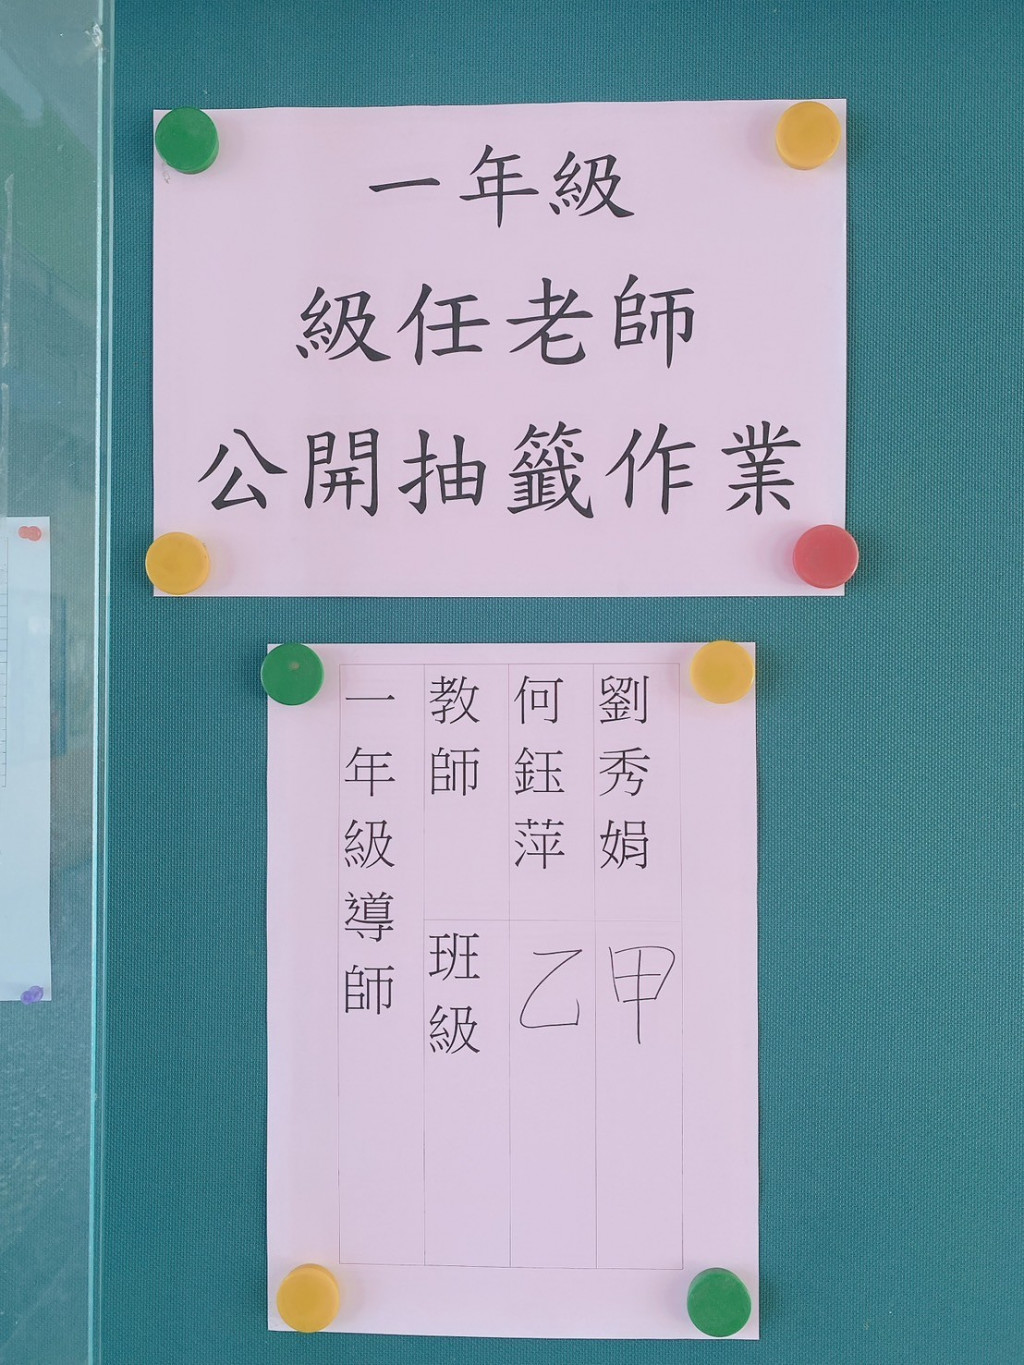 一年級
級任老師
公開抽籤作業
一年級導師
教師
班級
何鈺萍
乙
劉秀娟
甲